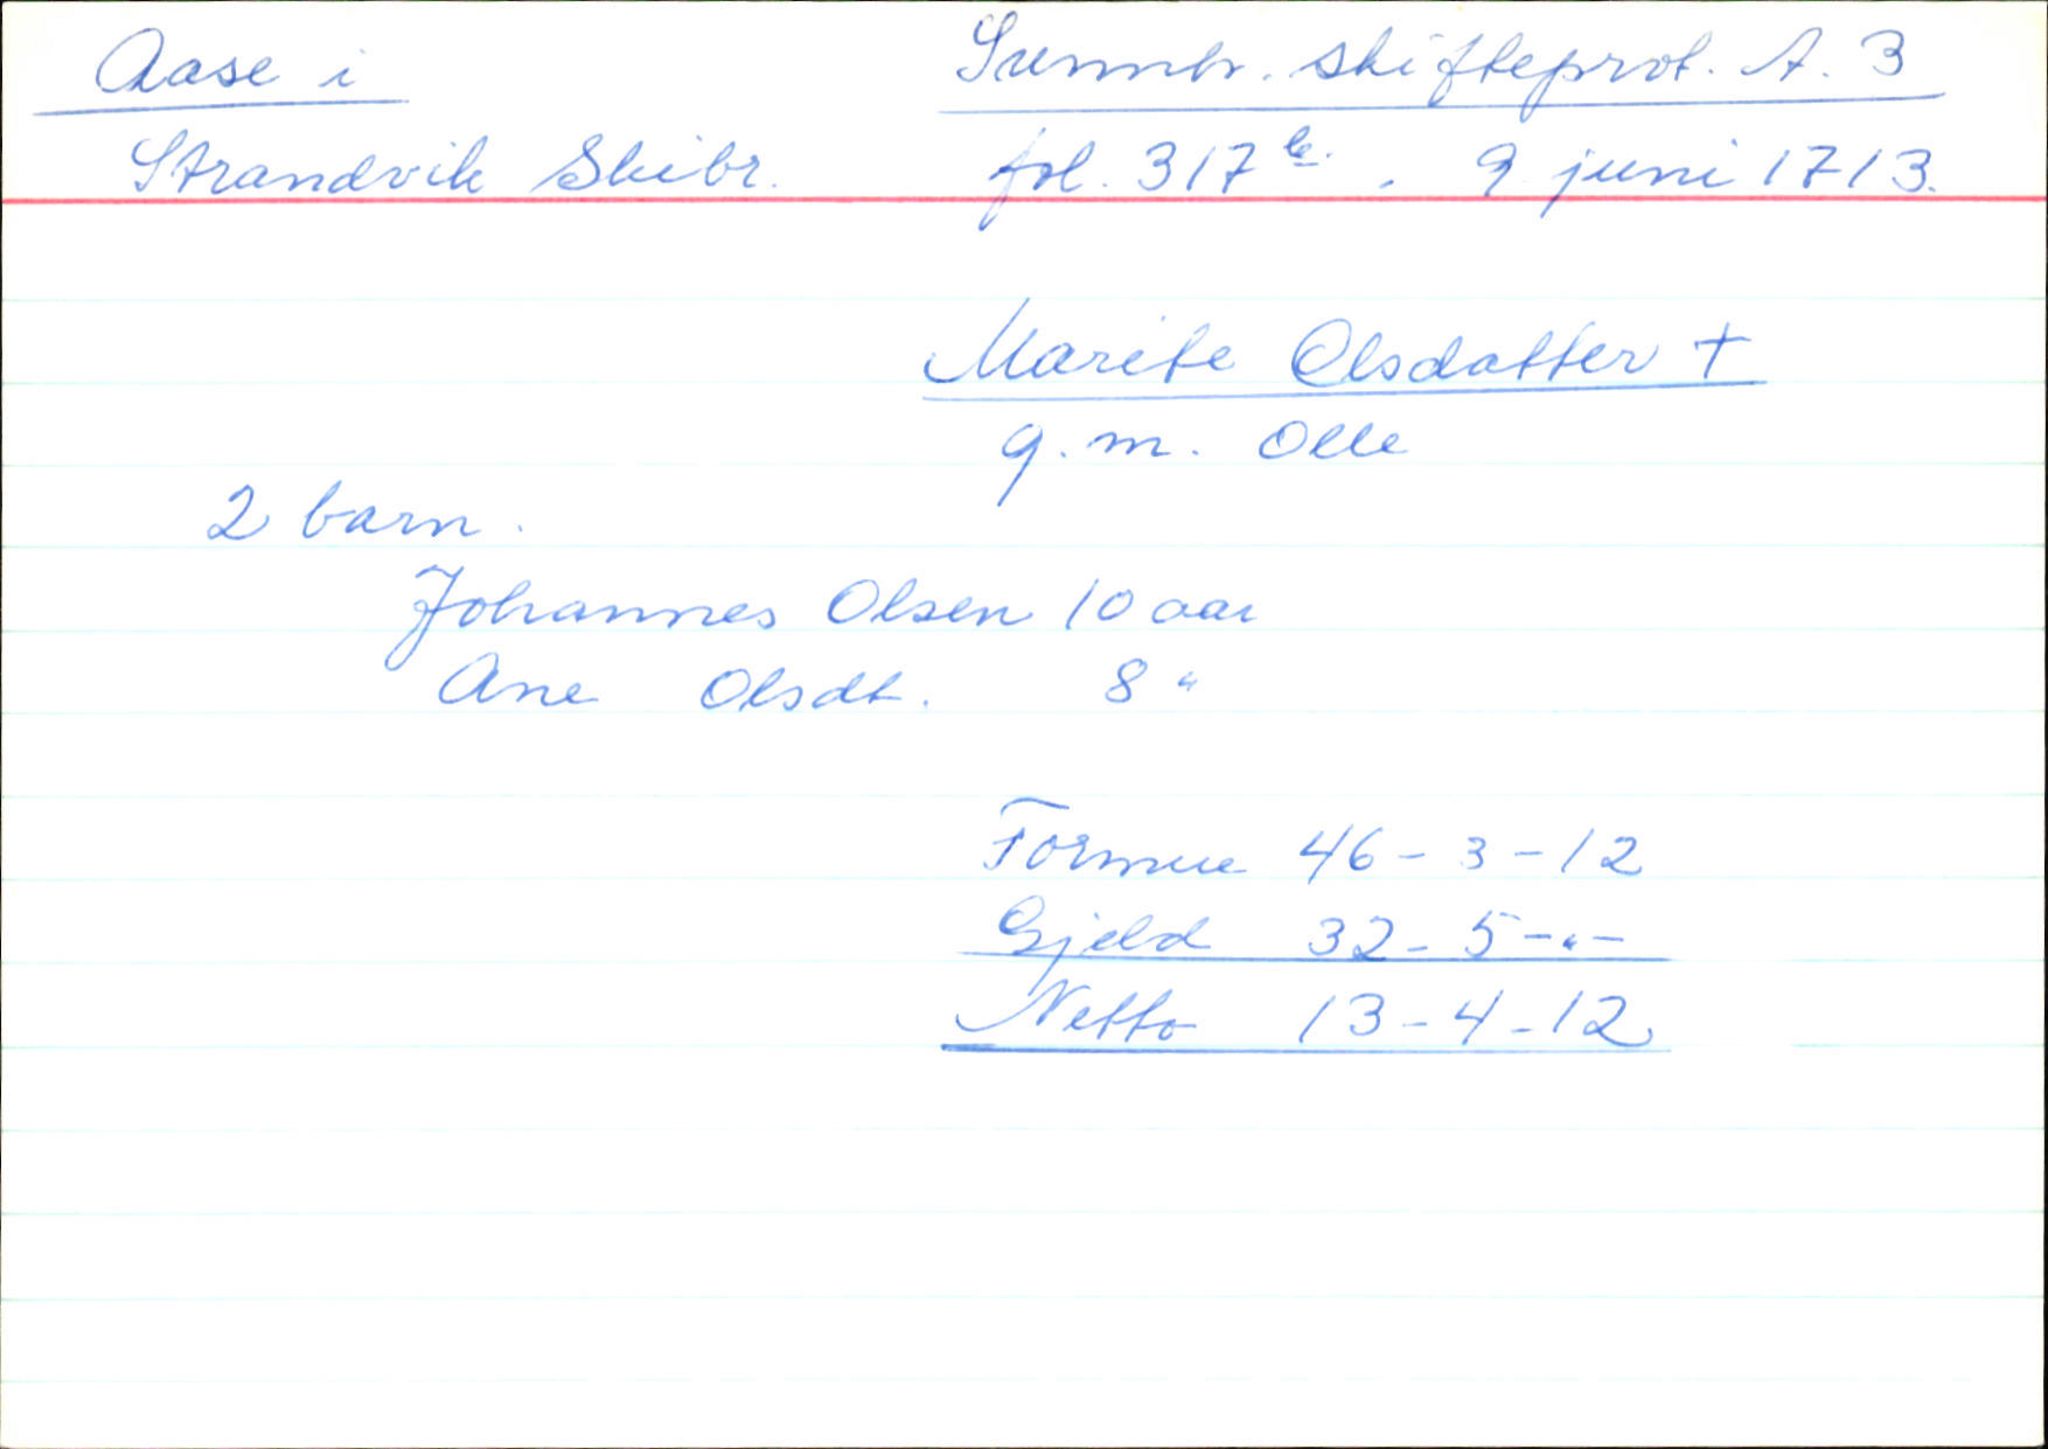 Aase i
Sunnh. skifteprot. A. 3
Strandvik Skibr.
fol. 317 b. 9 juni 1713.
Marite Olsdatter +
g. m. Olle
2 barn.
Johannes Olsen 10 aar
Ane Olsdt. 8 "
Formue 46 - 3 - 12
Gjeld 32 - 5 - " -
Netto 13 - 4 - 12